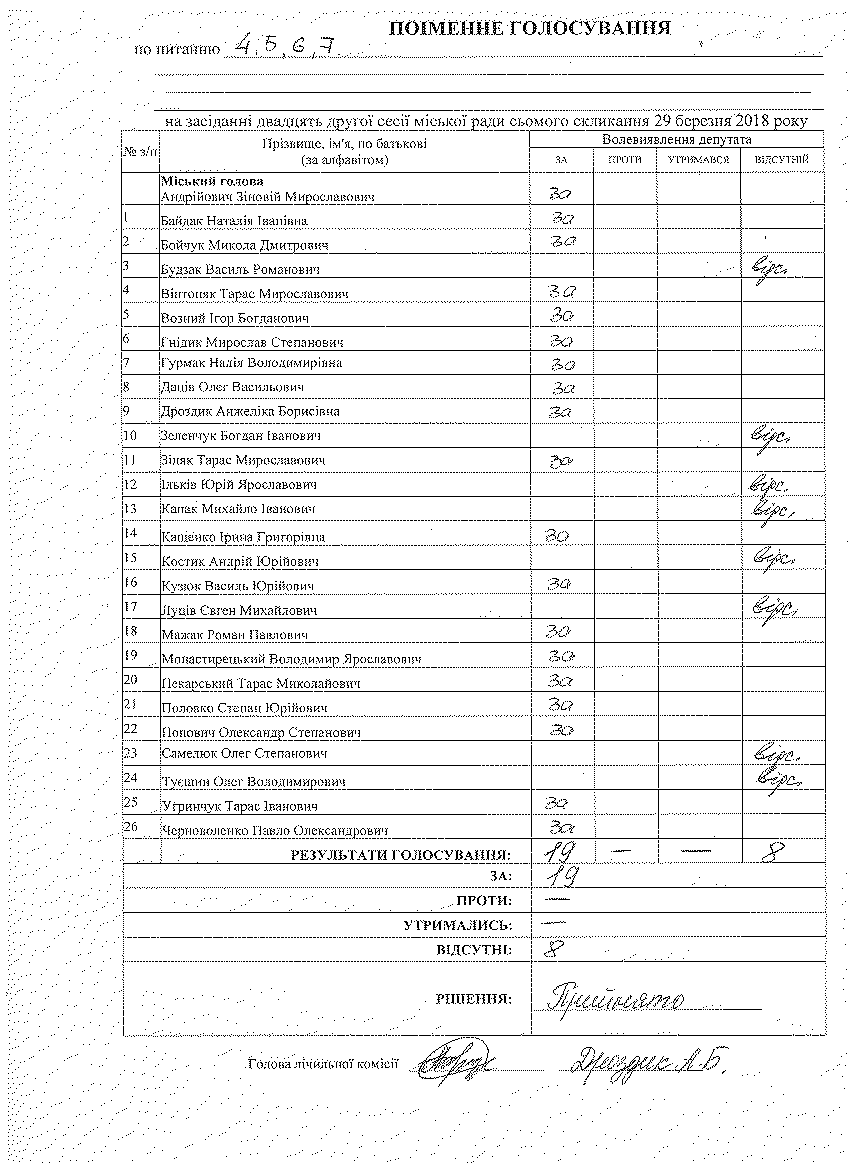 ПОІМЕННЕ ГОЛОСУВАННЯ
по питанню 4, 5, 6, 7
на засіданні двадцять другої сесії міської ради сьомого скликання 29 березня 2018 року
№ з/п Прізвище, ім'я, по батькові (за алфавітом) Волевиявлення депутата
ЗА ПРОТИ УТРИМАВСЯ ВІДСУТНІЙ
Міський голова
Андрійович Зіновій Мирославович За
1 Байдак Наталія Іванівна За
2 Бойчук Микола Дмитрович За
3 Будзак Василь Романович відс.
4 Вінтоняк Тарас Мирославович За
5 Возний Ігор Богданович За
6 Гнідик Мирослав Степанович За
7 Гурмак Надія Володимирівна За
8 Даців Олег Васильович За
9 Дроздик Анжеліка Борисівна За
10 Зеленчук Богдан Іванович відс.
11 Зіняк Тарас Мирославович За
12 Ільків Юрій Ярославович відс.
13 Капак Михайло Іванович відс.
14 Кащенко Ірина Григорівна За
15 Костик Андрій Юрійович відс.
16 Кузюк Василь Юрійович За
17 Луців Євген Михайлович відс.
18 Мажак Роман Павлович За
19 Монастирецький Володимир Ярославович За
20 Пекарський Тарас Миколайович За
21 Половко Степан Юрійович За
22 Попович Олександр Степанович За
23 Самелюк Олег Степанович відс.
24 Туєшин Олег Володимирович відс.
25 Угринчук Тарас Іванович За
26 Черноволенко Павло Олександрович За
РЕЗУЛЬТАТИ ГОЛОСУВАННЯ: 19 — — 8
ЗА: 19
ПРОТИ: —
УТРИМАЛИСЬ: —
ВІДСУТНІ: 8
РІШЕННЯ: Прийнято
Голова лічильної комісії Дроздик А.Б.